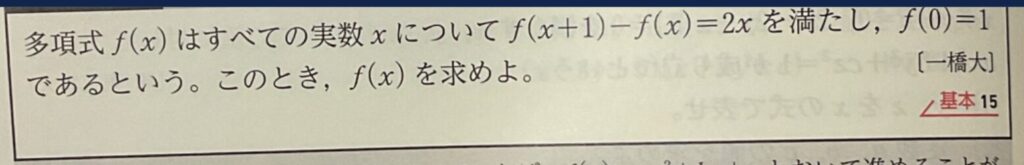 多項式 f(x) はすべての実数 x について f(x+1)−f(x)=2x を満たし，f(0)=1
であるという。このとき，f(x) を求めよ。
[一橋大]
基本 15